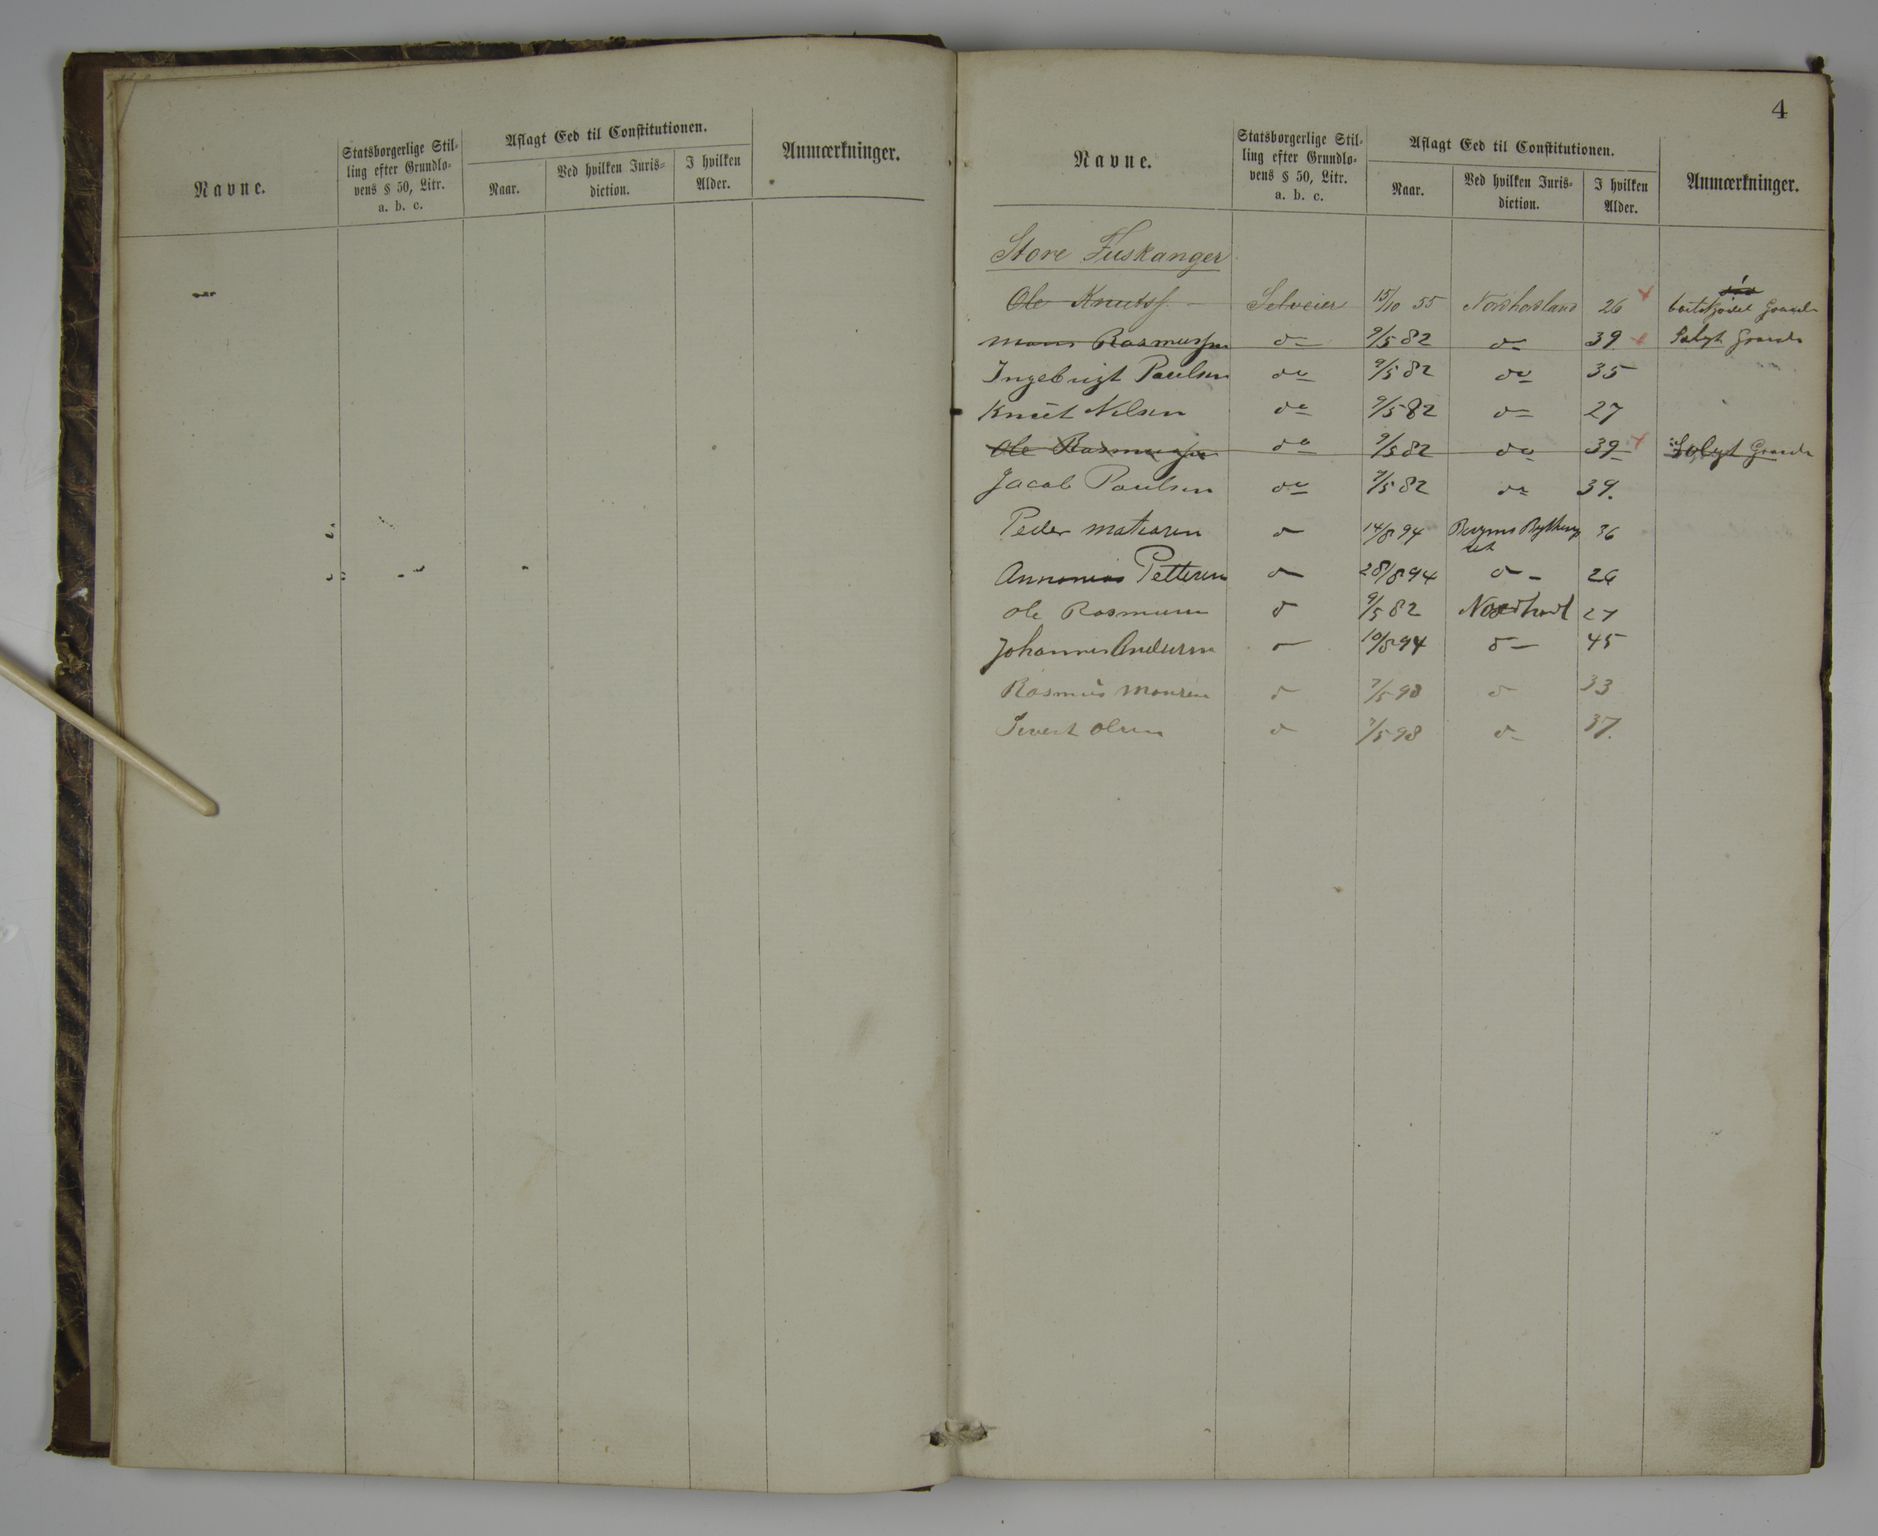 Navne.
Statsborgerlige Stil-
ling efter Grundlo-
vens § 50, Litr.
a. b. c.
Aflagt Eed til Constitutionen.
Naar.
Ved hvilken Juris-
diction.
I hvilken
Alder.
Anmærkninger.
4
Navne.
Statsborgerlige Stil-
ling efter Grundlo-
vens § 50, Litr.
a. b. c.
Aflagt Eed til Constitutionen.
Naar.
Ved hvilken Juris-
diction.
I hvilken
Alder.
Anmærkninger.
Store Fuskanger
Ole Knuts. Selveier 15/10 55 Nordhordland 26 Gaard
Mons Rasmussen do 9/5 82 do 39 Solgt Gaard
Ingebrigt Paulsen do 9/5 82 do 35
Knut Nilsen do 9/5 82 do 27
Ole Rasmussen do 9/5 82 do 39 Solgt Gaard
Jacob Paulsen do 9/5 82 do 39.
Peder 14/8 94 36
Pettersen 28/8 94 26
Ole Rasmusen 9/5 82 Nordhordl 27
Johannes Andersen 10/8 94 45
Rasmus Monsen 7/5 98 33
Sivert Olsen 7/5 98 37.